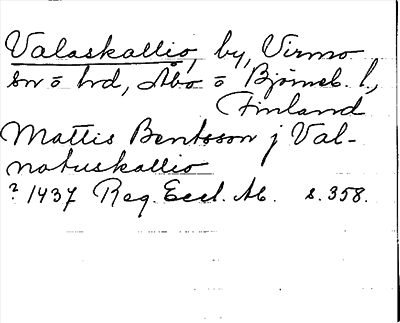 Valaskallio, by, Virmo
sn o hd, Åbo o Björneb. l.,
Finland
Mattis Bentsson j Val-
natuskallio
? 1437 Reg. Eccl. Ab. s. 358.